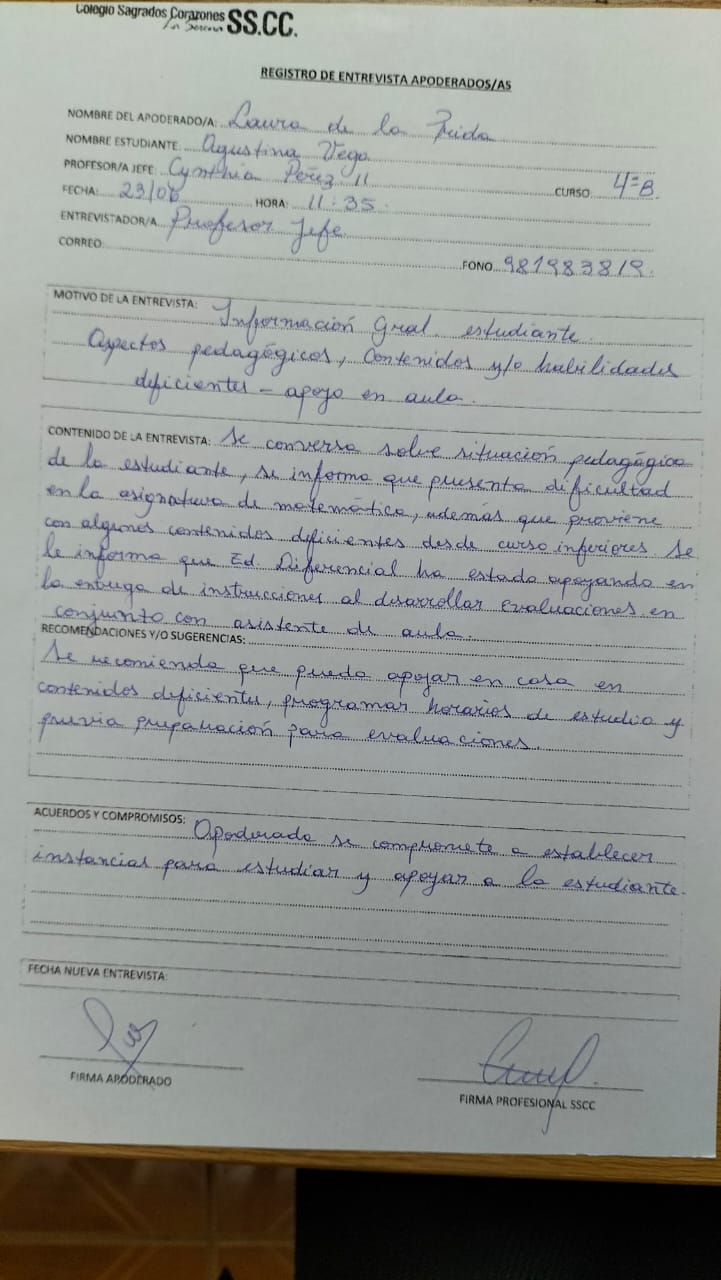 Colegio Sagrados Corazones SS.CC.
La Serena
REGISTRO DE ENTREVISTA APODERADOS/AS
NOMBRE DEL APODERADO/A: Laura de la
NOMBRE ESTUDIANTE: Agustina Vega
PROFESOR/A JEFE: Cynthia Pérez CURSO 4ºB.
FECHA: 23/06 HORA: 11:35
ENTREVISTADOR/A Profesor Jefe
CORREO: FONO 981983819.
MOTIVO DE LA ENTREVISTA: Información Gral. estudiante.
Aspectos pedagógicos, Contenidos y/o habilidades
deficientes - apoyo en aula.
CONTENIDO DE LA ENTREVISTA: Se conversa solve situación pedagógica
de la estudiante, se informa que presenta dificultad
en la asignatura de matemática, además que proviene
con algunos contenidos deficientes desde curso inferiores. Se
le informa que Ed. Diferencial ha estado apoyando en
la entrega de instrucciones al desarrollar evaluaciones en
conjunto con asistente de aula.
RECOMENDACIONES Y/O SUGERENCIAS:
Se recomienda que pueda apoyar en casa en
contenidos deficientes, programar horarios de estudio y
previa preparación para evaluaciones.
ACUERDOS Y COMPROMISOS: Apoderado se compromete a establecer
instancias para estudiar y apoyar a la estudiante.
FECHA NUEVA ENTREVISTA:
FIRMA APODERADO
FIRMA PROFESIONAL SSCC